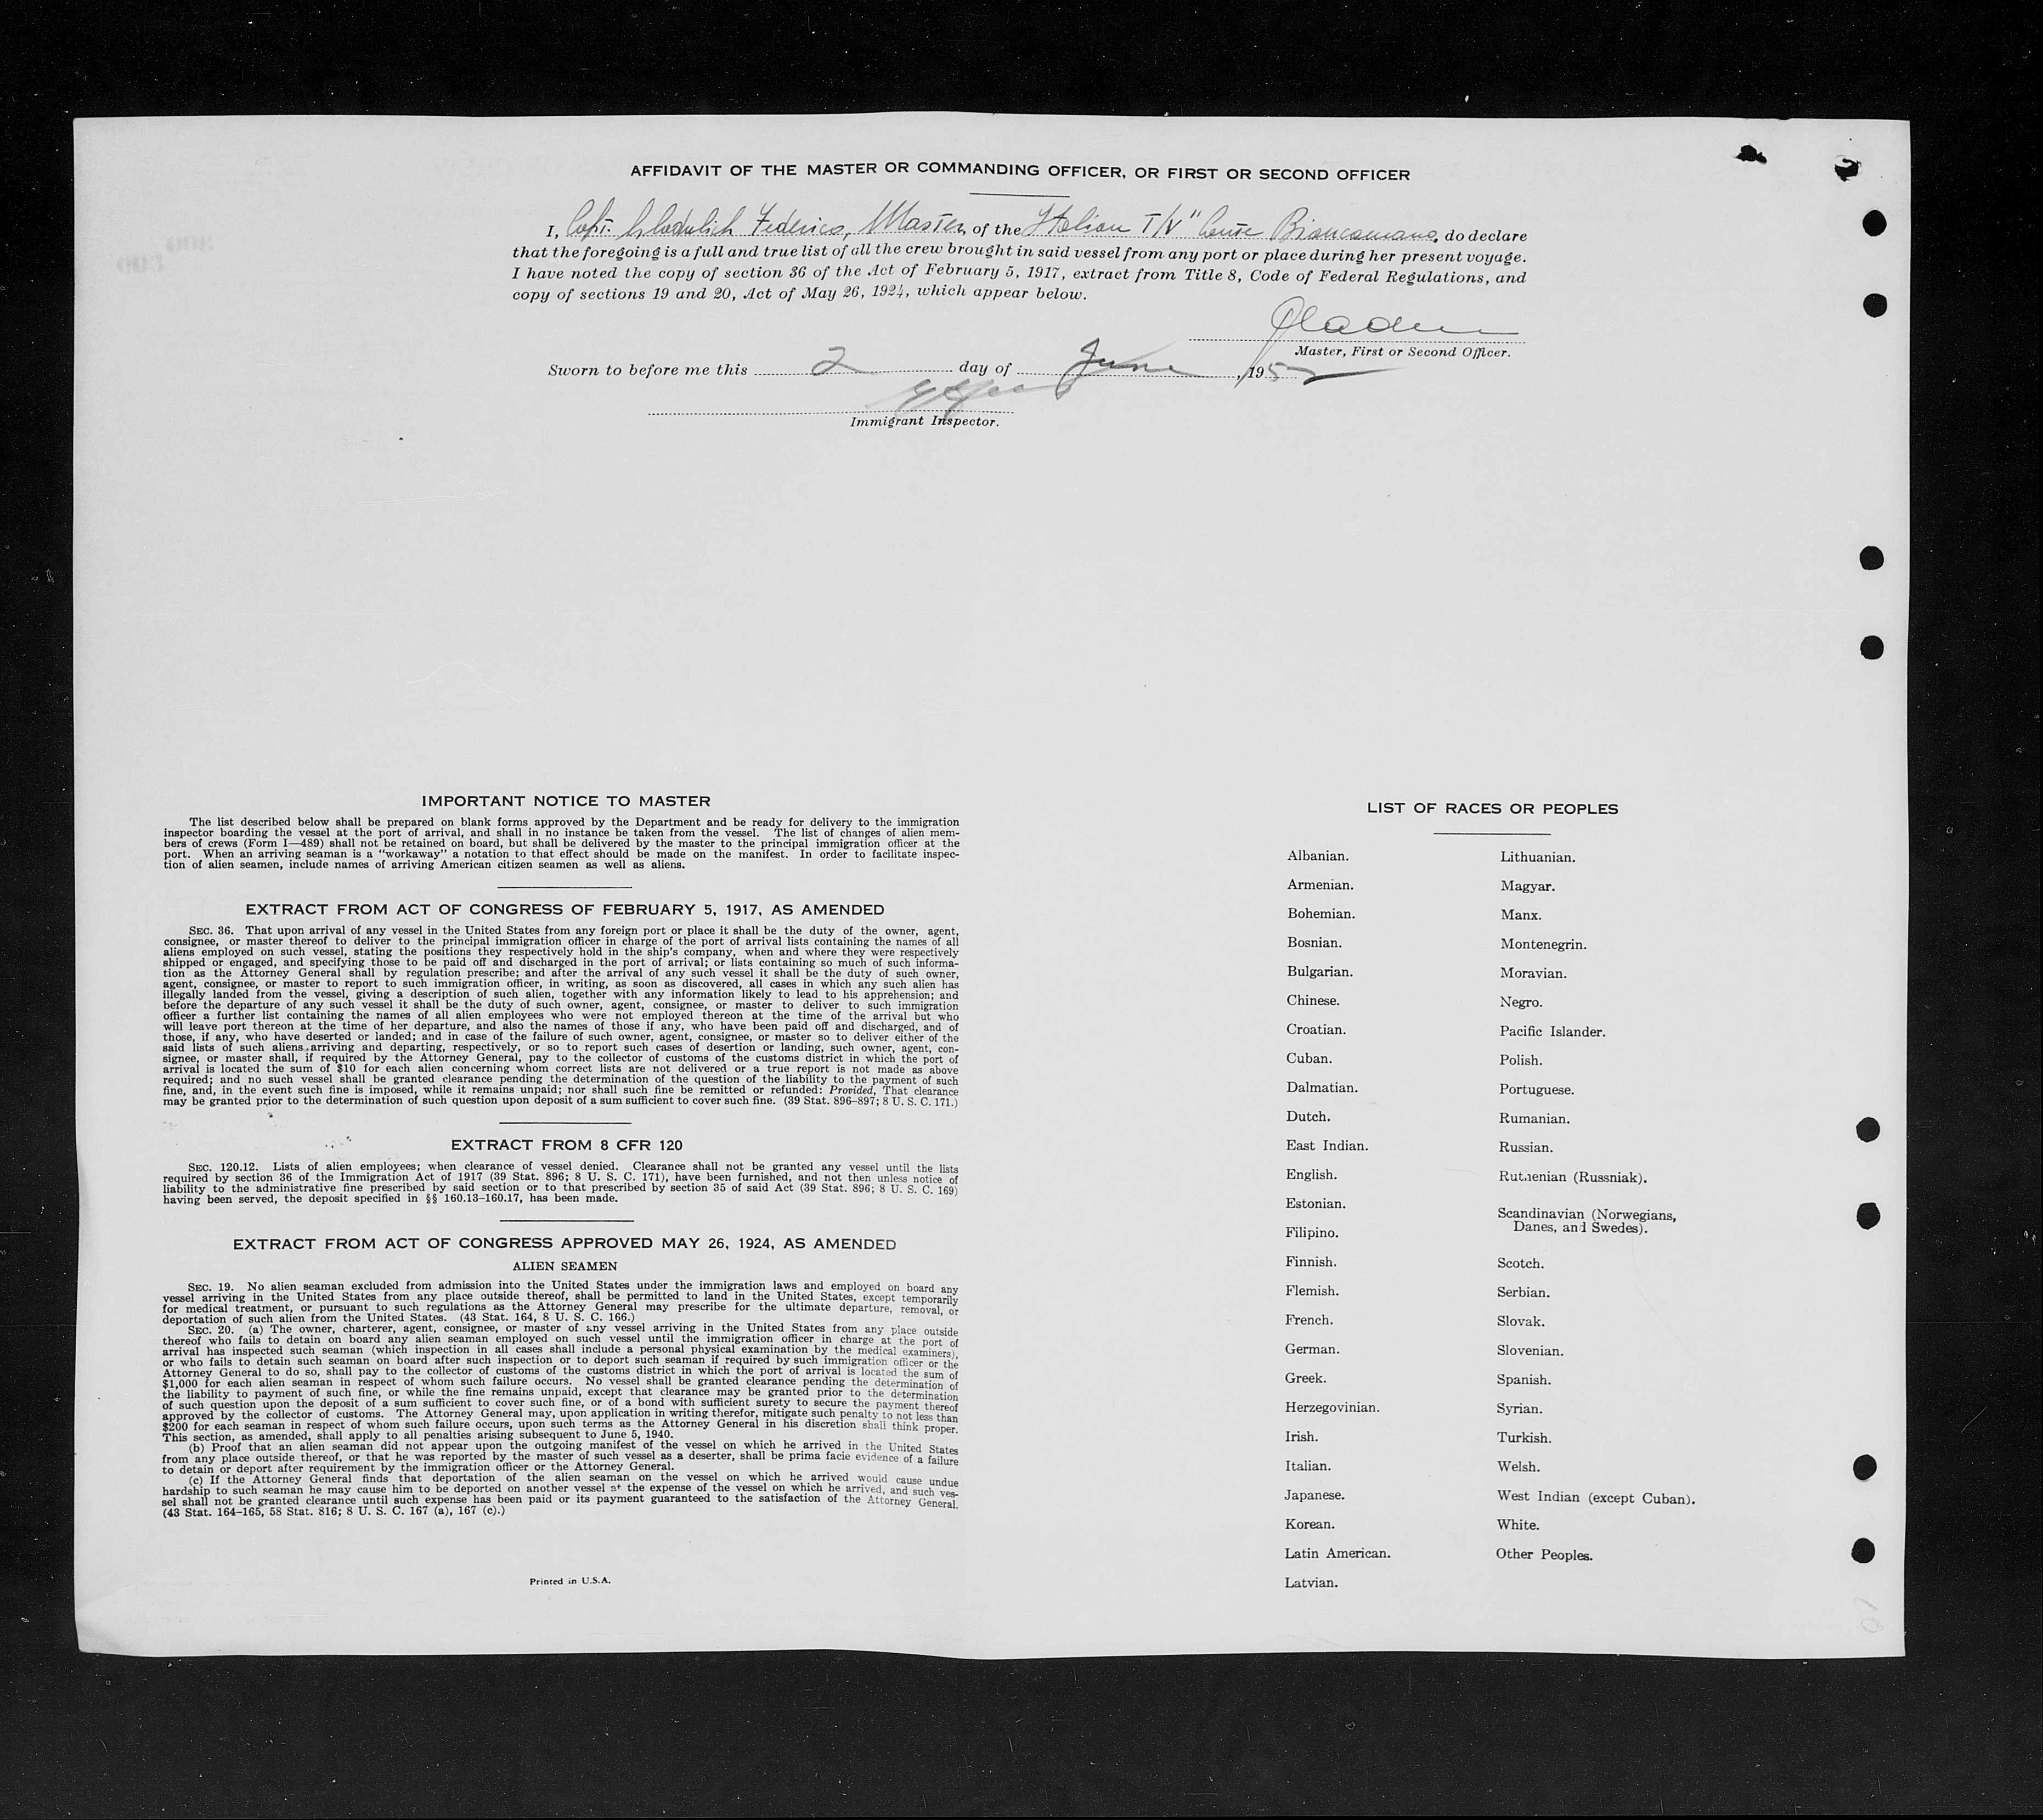 AFFIDAVIT OF THE MASTER OR COMMANDING OFFICER, OR FIRST OR SECOND OFFICER
I, Capt. Federico, Master, of the Italian T/V "Conte Biancamano, do declare
that the foregoing is a full and true list of all the crew brought in said vessel from any port or place during her present voyage.
I have noted the copy of section 36 of the Act of February 5, 1917, extract from Title 8, Code of Federal Regulations, and
copy of sections 19 and 20, Act of May 26, 1924, which appear below.
Master, First or Second Officer.
Sworn to before me this 2 day of June, 1952
Immigrant Inspector.
IMPORTANT NOTICE TO MASTER
The list described below shall be prepared on blank forms approved by the Department and be ready for delivery to the immigration
inspector boarding the vessel at the port of arrival, and shall in no instance be taken from the vessel. The list of changes of alien mem-
bers of crews (Form I—489) shall not be retained on board, but shall be delivered by the master to the principal immigration officer at the
port. When an arriving seaman is a "workaway" a notation to that effect should be made on the manifest. In order to facilitate inspec-
tion of alien seamen, include names of arriving American citizen seamen as well as aliens.
EXTRACT FROM ACT OF CONGRESS OF FEBRUARY 5, 1917, AS AMENDED
SEC. 36. That upon arrival of any vessel in the United States from any foreign port or place it shall be the duty of the owner, agent,
consignee, or master thereof to deliver to the principal immigration officer in charge of the port of arrival lists containing the names of all
aliens employed on such vessel, stating the positions they respectively hold in the ship's company, when and where they were respectively
shipped or engaged, and specifying those to be paid off and discharged in the port of arrival; or lists containing so much of such informa-
tion as the Attorney General shall by regulation prescribe; and after the arrival of any such vessel it shall be the duty of such owner,
agent, consignee, or master to report to such immigration officer, in writing, as soon as discovered, all cases in which any such alien has
illegally landed from the vessel, giving a description of such alien, together with any information likely to lead to his apprehension; and
before the departure of any such vessel it shall be the duty of such owner, agent, consignee, or master to deliver to such immigration
officer a further list containing the names of all alien employees who were not employed thereon at the time of the arrival but who
will leave port thereon at the time of her departure, and also the names of those if any, who have been paid off and discharged, and of
those, if any, who have deserted or landed; and in case of the failure of such owner, agent, consignee, or master so to deliver either of the
said lists of such aliens arriving and departing, respectively, or so to report such cases of desertion or landing, such owner, agent, con-
signee, or master shall, if required by the Attorney General, pay to the collector of customs of the customs district in which the port of
arrival is located the sum of $10 for each alien concerning whom correct lists are not delivered or a true report is not made as above
required; and no such vessel shall be granted clearance pending the determination of the question of the liability to the payment of such
fine, and, in the event such fine is imposed, while it remains unpaid; nor shall such fine be remitted or refunded: Provided, That clearance
may be granted prior to the determination of such question upon deposit of a sum sufficient to cover such fine. (39 Stat. 896–897; 8 U. S. C. 171.)
EXTRACT FROM 8 CFR 120
SEC. 120.12. Lists of alien employees; when clearance of vessel denied. Clearance shall not be granted any vessel until the lists
required by section 36 of the Immigration Act of 1917 (39 Stat. 896; 8 U. S. C. 171), have been furnished, and not then unless notice of
liability to the administrative fine prescribed by said section or to that prescribed by section 35 of said Act (39 Stat. 896; 8 U. S. C. 169)
having been served, the deposit specified in §§ 160.13–160.17, has been made.
EXTRACT FROM ACT OF CONGRESS APPROVED MAY 26, 1924, AS AMENDED
ALIEN SEAMEN
SEC. 19. No alien seaman excluded from admission into the United States under the immigration laws and employed on board any
vessel arriving in the United States from any place outside thereof, shall be permitted to land in the United States, except temporarily
for medical treatment, or pursuant to such regulations as the Attorney General may prescribe for the ultimate departure, removal, or
deportation of such alien from the United States. (43 Stat. 164, 8 U. S. C. 166.)
SEC. 20. (a) The owner, charterer, agent, consignee, or master of any vessel arriving in the United States from any place outside
thereof who fails to detain on board any alien seaman employed on such vessel until the immigration officer in charge at the port of
arrival has inspected such seaman (which inspection in all cases shall include a personal physical examination by the medical examiners),
or who fails to detain such seaman on board after such inspection or to deport such seaman if required by such immigration officer or the
Attorney General to do so, shall pay to the collector of customs of the customs district in which the port of arrival is located the sum of
$1,000 for each alien seaman in respect of whom such failure occurs. No vessel shall be granted clearance pending the determination of
the liability to payment of such fine, or while the fine remains unpaid, except that clearance may be granted prior to the determination
of such question upon the deposit of a sum sufficient to cover such fine, or of a bond with sufficient surety to secure the payment thereof
approved by the collector of customs. The Attorney General may, upon application in writing therefor, mitigate such penalty to not less than
$200 for each seaman in respect of whom such failure occurs, upon such terms as the Attorney General in his discretion shall think proper.
This section, as amended, shall apply to all penalties arising subsequent to June 5, 1940.
(b) Proof that an alien seaman did not appear upon the outgoing manifest of the vessel on which he arrived in the United States
from any place outside thereof, or that he was reported by the master of such vessel as a deserter, shall be prima facie evidence of a failure
to detain or deport after requirement by the immigration officer or the Attorney General.
(c) If the Attorney General finds that deportation of the alien seaman on the vessel on which he arrived would cause undue
hardship to such seaman he may cause him to be deported on another vessel at the expense of the vessel on which he arrived, and such ves-
sel shall not be granted clearance until such expense has been paid or its payment guaranteed to the satisfaction of the Attorney General.
(43 Stat. 164–165, 58 Stat. 816; 8 U. S. C. 167 (a), 167 (c).)
Printed in U.S.A.
LIST OF RACES OR PEOPLES
Albanian.
Armenian.
Bohemian.
Bosnian.
Bulgarian.
Chinese.
Croatian.
Cuban.
Dalmatian.
Dutch.
East Indian.
English.
Estonian.
Filipino.
Finnish.
Flemish.
French.
German.
Greek.
Herzegovinian.
Irish.
Italian.
Japanese.
Korean.
Latin American.
Latvian.
Lithuanian.
Magyar.
Manx.
Montenegrin.
Moravian.
Negro.
Pacific Islander.
Polish.
Portuguese.
Rumanian.
Russian.
Ruthenian (Russniak).
Scandinavian (Norwegians,
Danes, and Swedes).
Scotch.
Serbian.
Slovak.
Slovenian.
Spanish.
Syrian.
Turkish.
Welsh.
West Indian (except Cuban).
White.
Other Peoples.